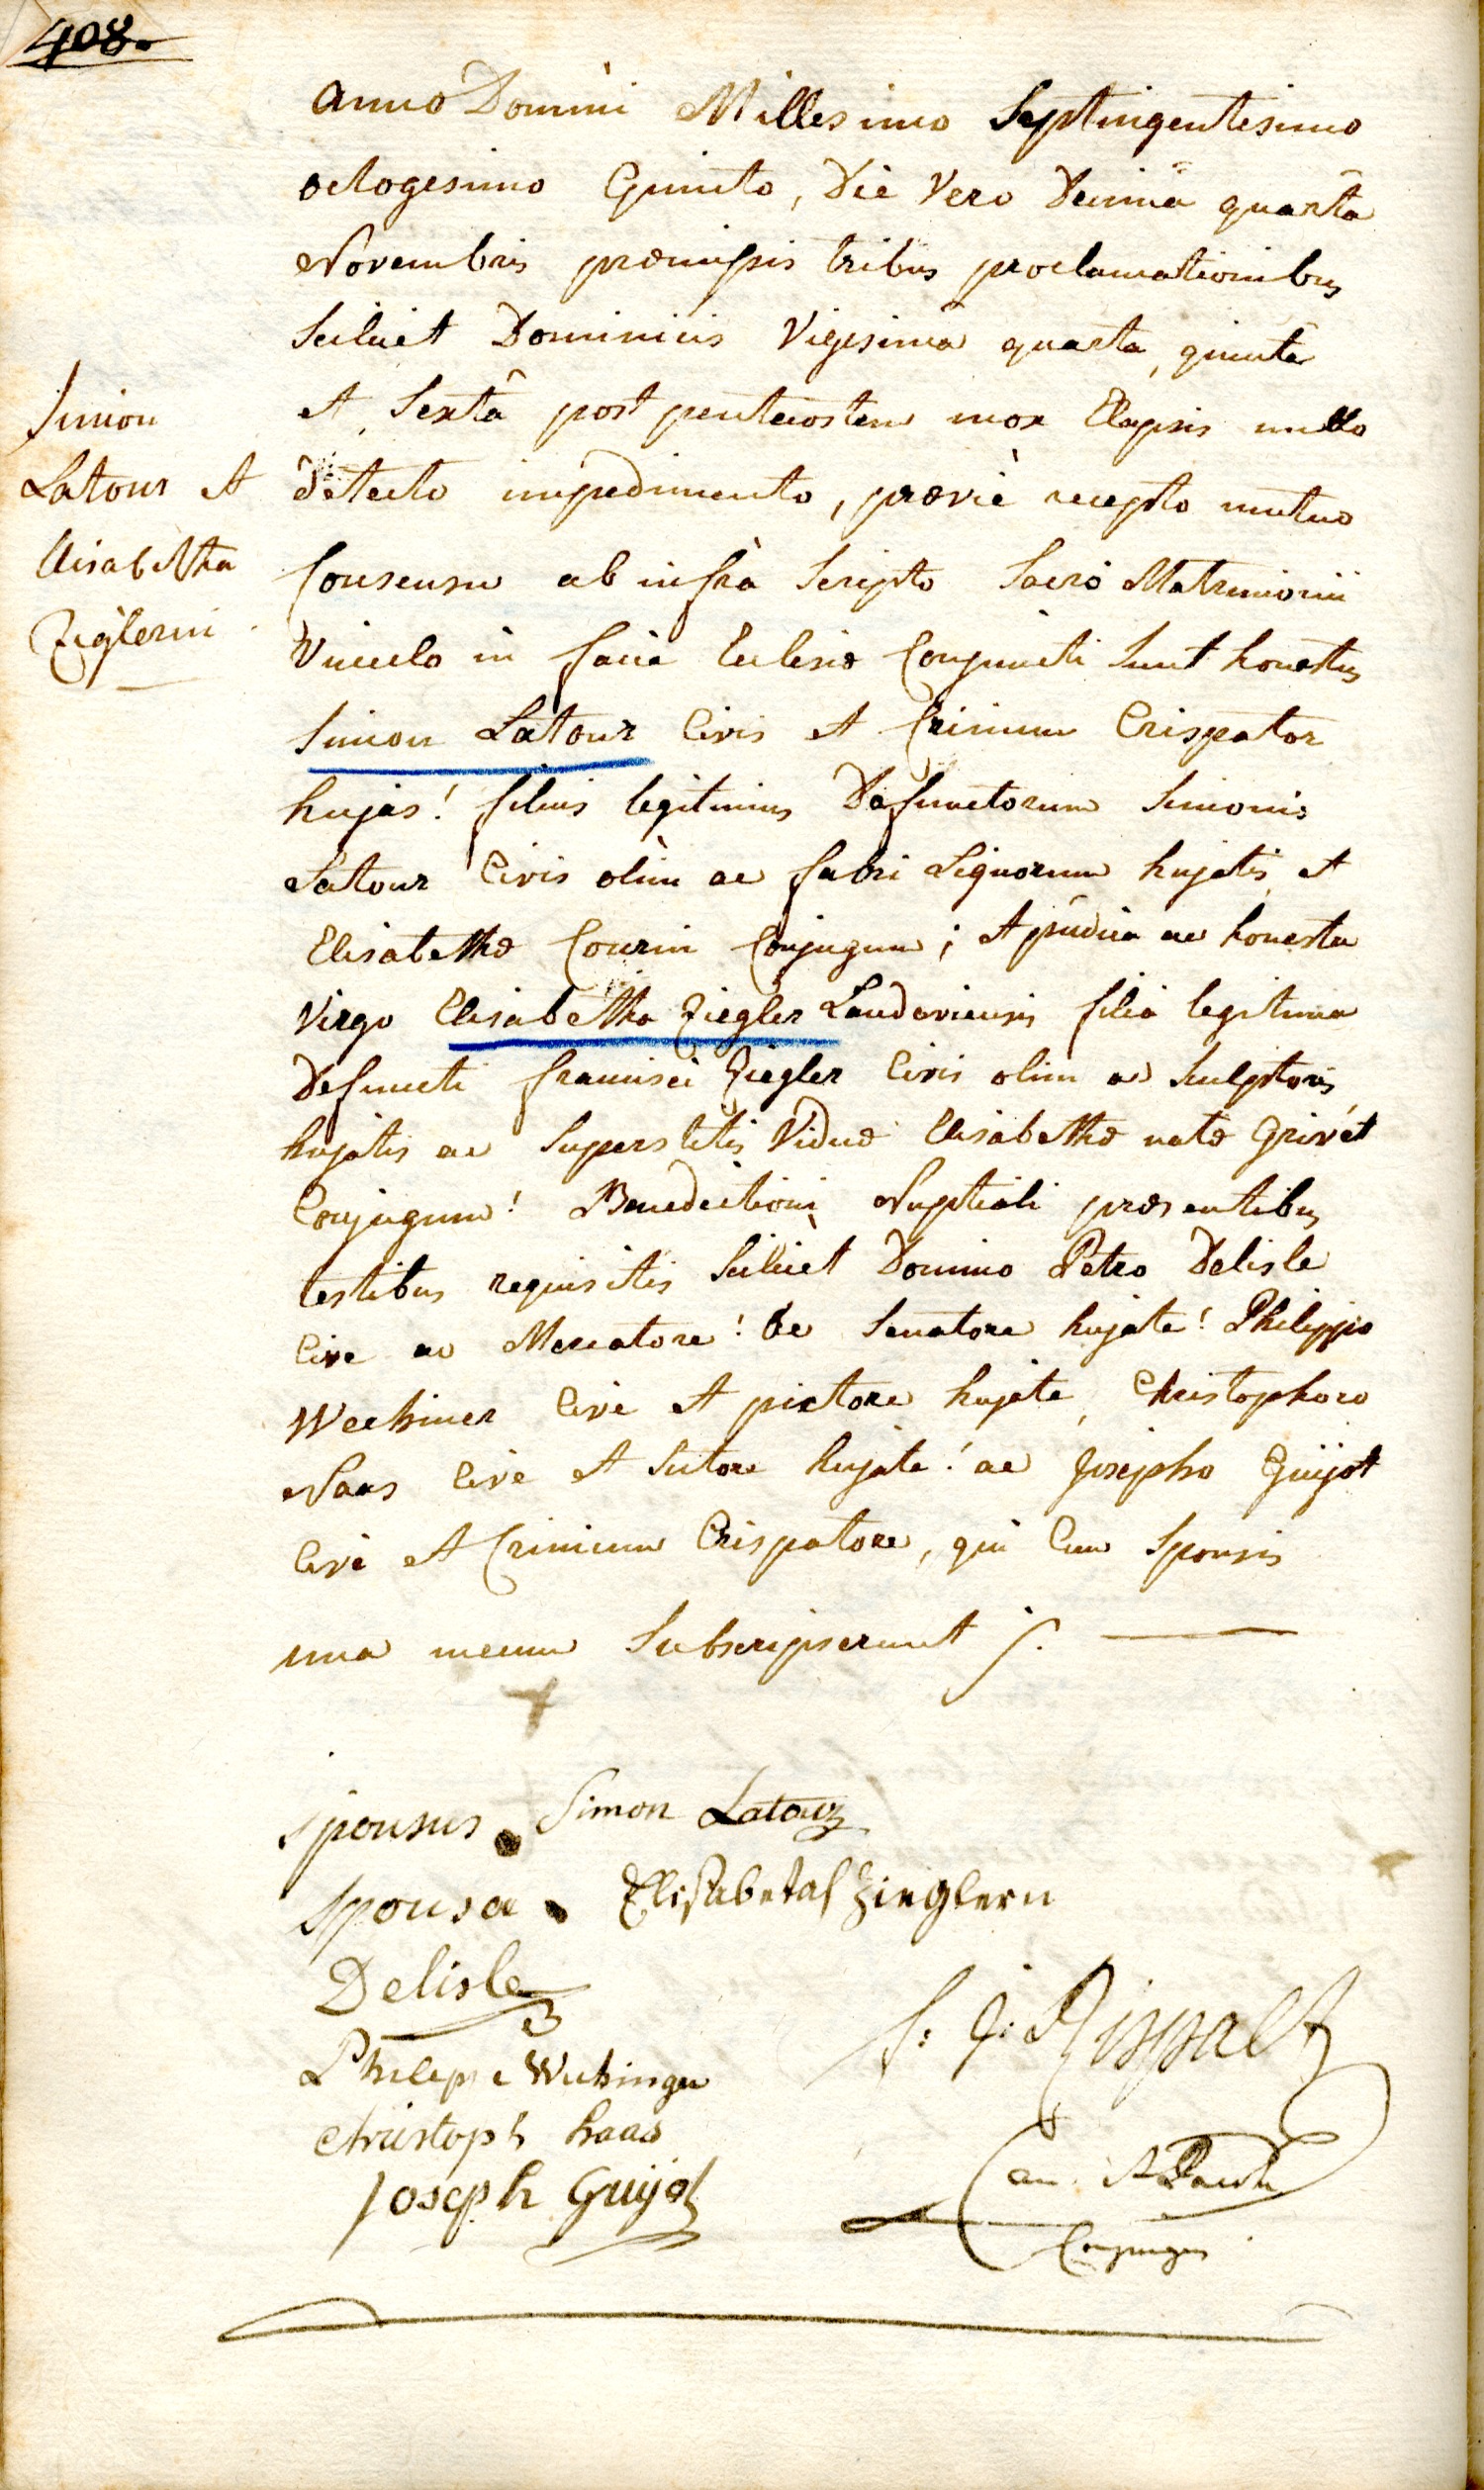 408.
Anno Domini Millesimo Septingentesimo
octogesimo Quinto, Die Vero Decimâ quartâ
Novembris præmissis tribus proclamationibus
Scilicet Dominicis Vigesimâ quartâ, quintâ
et Sextâ post pentecosten mox Elapsis nullo
detecto impedimento, prævie recepto mutuo
Consensu ab infrà Scripto Sacro Matrimonii
Vinculo in facie Eclesiæ Conjuncti Sunt honestus
Simon Latour Civis et Crinium Crispator
hujas! filius legitimus Defunctorum Simonis
Latour Civis olim ac fabri Lignorum hujatis et
Elisabethæ Conjugum; et pudica ac honesta
Virgo Elisabetha Ziegler Landaviensis filia legitima
Defuncti francisci Ziegler Civis olim ac Sculptoris
hujatis ac Superstitis Viduæ Elisabethæ natæ Grivét
Conjugum! Benedictioni Nuptiali præsentibus
testibus requisitis Scilicet Domino Petro Delisle
Cive ac Mercatore! ac Senatore hujate! Philippo
Weckiner Cive et pictore hujate, Christophoro
Naas Cive et Sutore hujate! ac Josepho Guijot
Cive et Crinium Crispatore, qui Cum Sponsis
una mecum Subscripserunt
Simon
Latour et
Elisabetha
Ziglerin
Sponsus. Simon Latour
Sponsa. Elisabetah Zieglern
Delisle
Philippe Wickinger
Christoph haas
Joseph Guijot